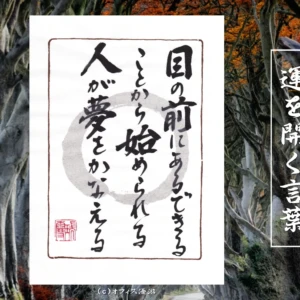 運を開く言葉
目の前にあるできる
ことから始められる
人が夢をかなえる